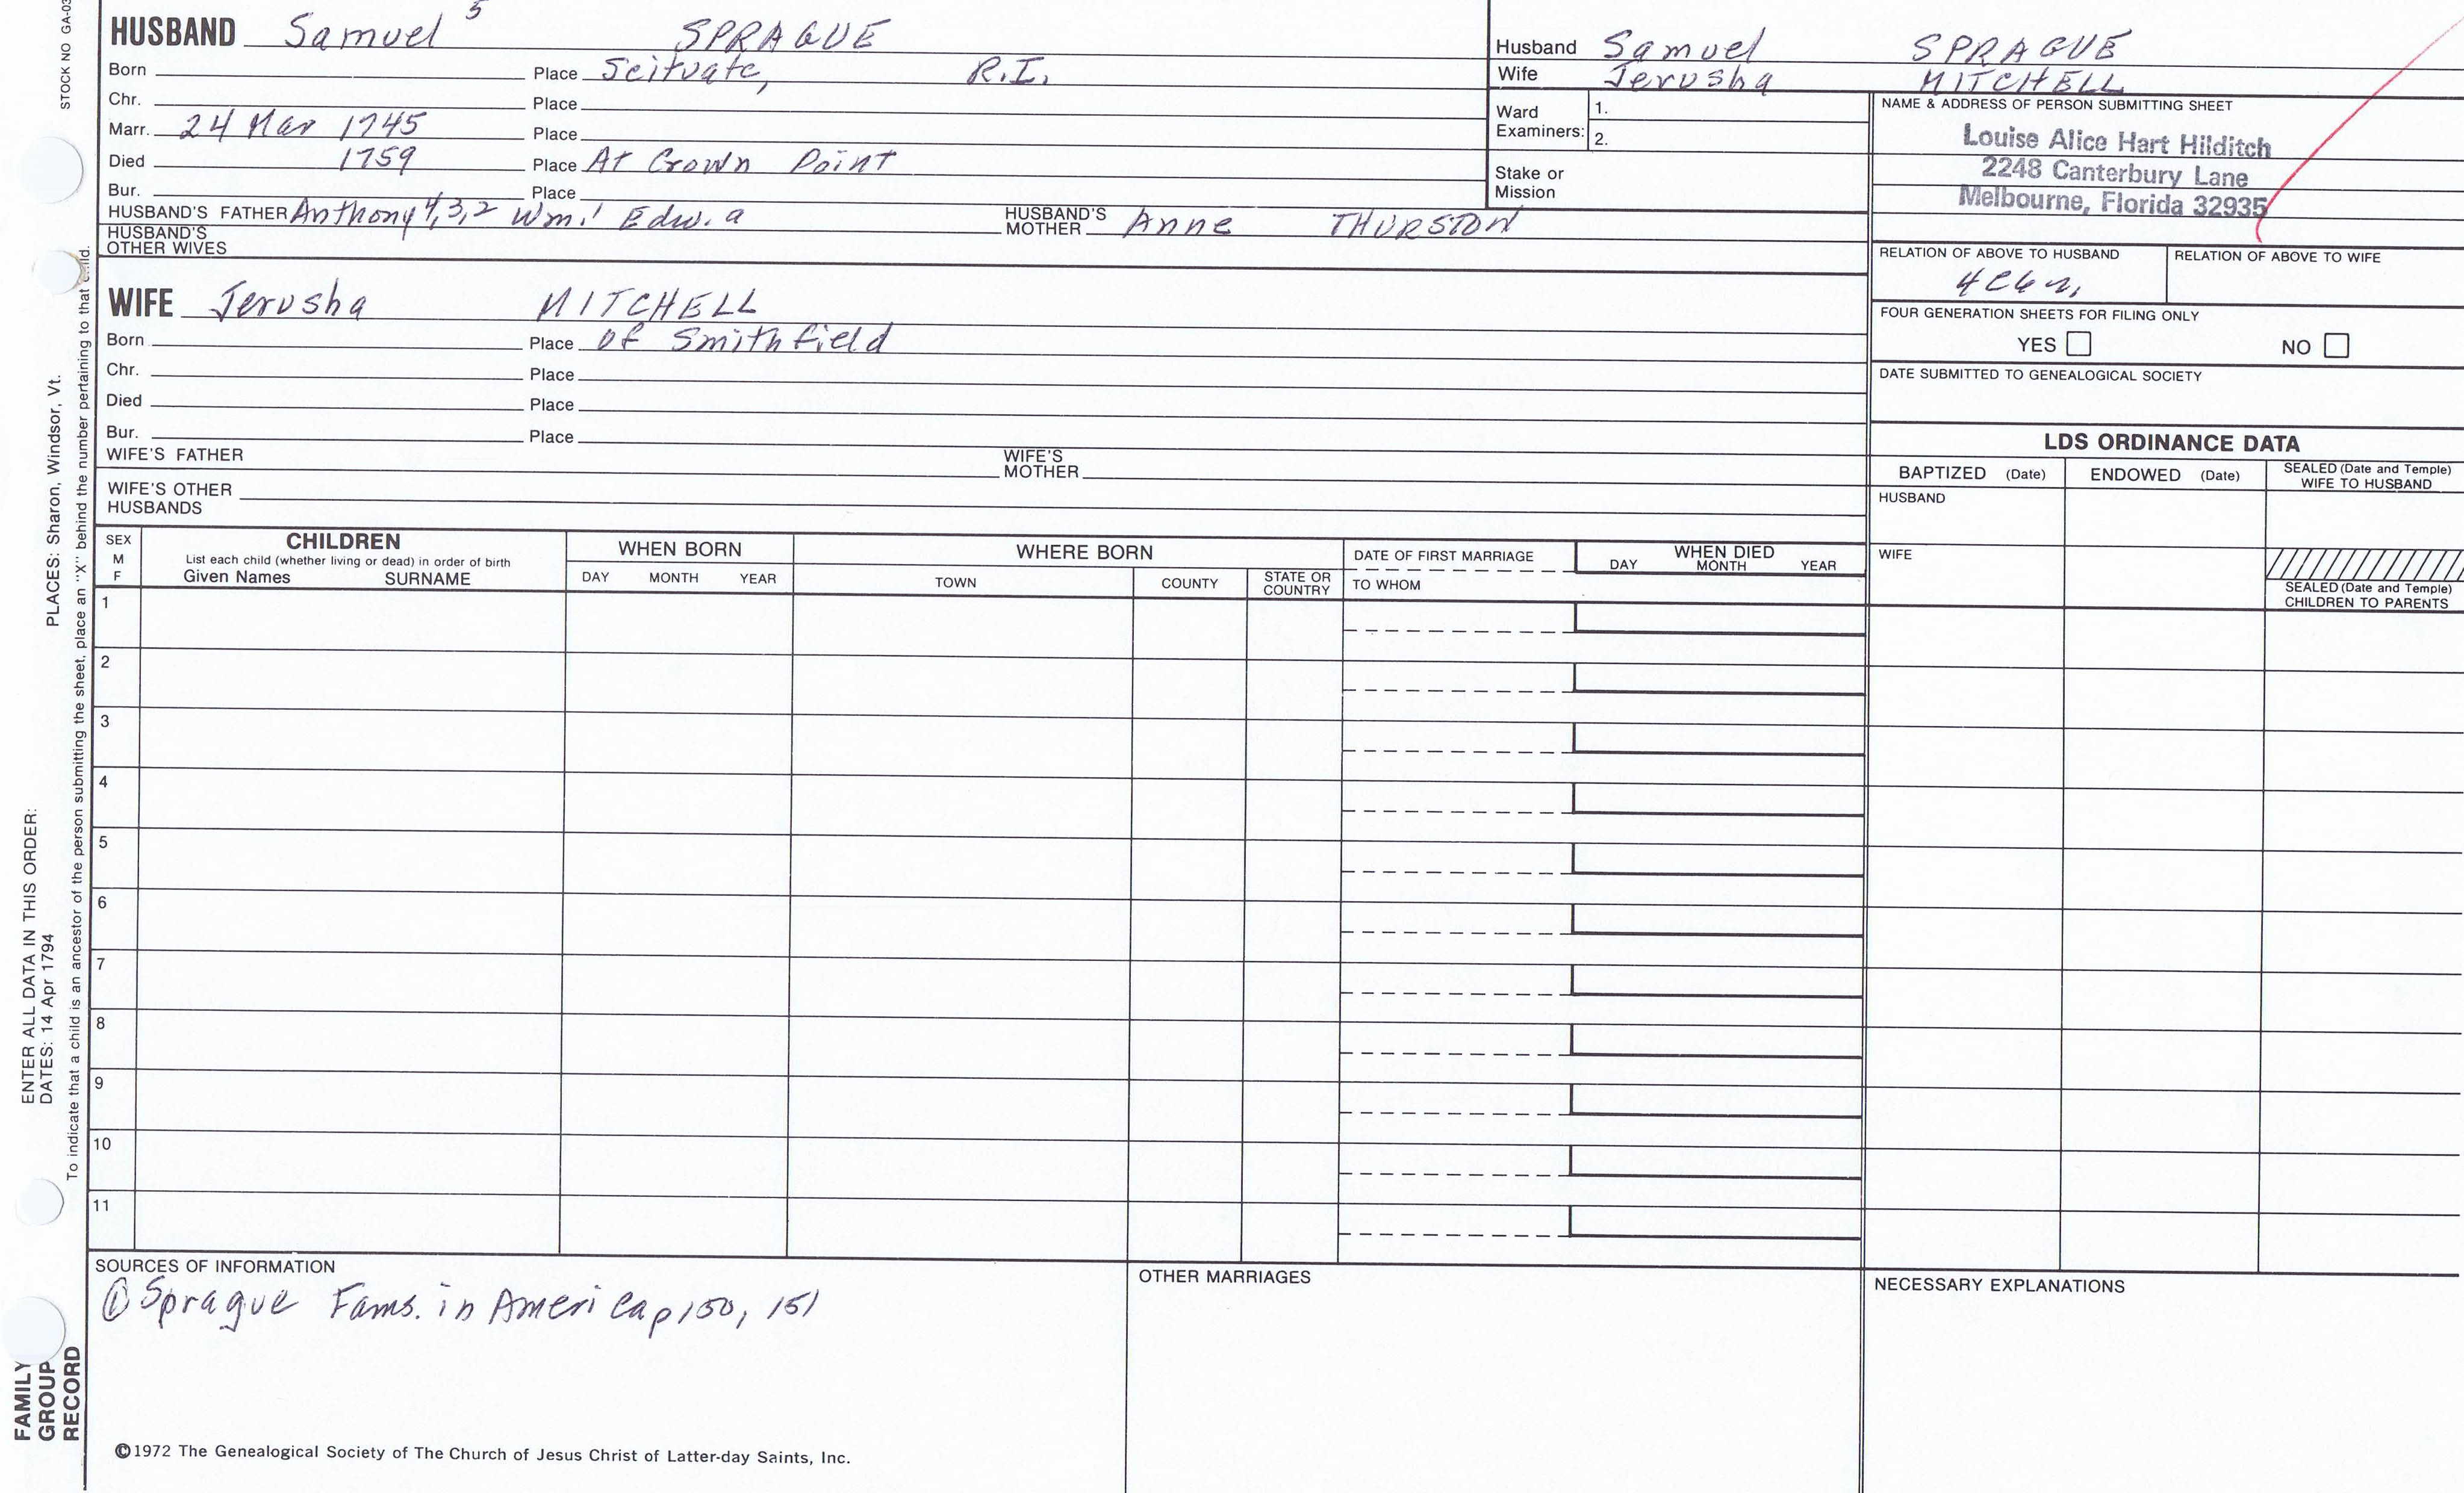 STOCK NO GA-03
HUSBAND Samuel 5 SPRAGUE
Born Place Scituate, R.I.
Chr. Place
Marr. 24 Mar 1745 Place
Died 1759 Place At Crown Point
Bur. Place
HUSBAND'S FATHER Anthony 4,3,2 Wm.1 Edw. a HUSBAND'S MOTHER Anne THURSTON
HUSBAND'S OTHER WIVES
WIFE Jerusha MITCHELL
Born Place of Smithfield
Chr. Place
Died Place
Bur. Place
WIFE'S FATHER WIFE'S MOTHER
WIFE'S OTHER HUSBANDS
Husband Samuel SPRAGUE
Wife Jerusha MITCHELL
Ward Examiners: 1.
2.
Stake or Mission
NAME & ADDRESS OF PERSON SUBMITTING SHEET
Louise Alice Hart Hilditch
2248 Canterbury Lane
Melbourne, Florida 32935
RELATION OF ABOVE TO HUSBAND RELATION OF ABOVE TO WIFE
FOUR GENERATION SHEETS FOR FILING ONLY
YES NO
DATE SUBMITTED TO GENEALOGICAL SOCIETY
LDS ORDINANCE DATA
BAPTIZED (Date) ENDOWED (Date) SEALED (Date and Temple) WIFE TO HUSBAND
HUSBAND
WIFE
SEALED (Date and Temple) CHILDREN TO PARENTS
SEX M F
CHILDREN
List each child (whether living or dead) in order of birth
Given Names SURNAME
WHEN BORN
DAY MONTH YEAR
WHERE BORN
TOWN COUNTY STATE OR COUNTRY
DATE OF FIRST MARRIAGE
TO WHOM
WHEN DIED
DAY MONTH YEAR
1
2
3
4
5
6
7
8
9
10
11
SOURCES OF INFORMATION
① Sprague Fams. in America p 150, 151
OTHER MARRIAGES
NECESSARY EXPLANATIONS
©1972 The Genealogical Society of The Church of Jesus Christ of Latter-day Saints, Inc.
FAMILY
GROUP
RECORD
ENTER ALL DATA IN THIS ORDER:
DATES: 14 Apr 1794 PLACES: Sharon, Windsor, Vt.
To indicate that a child is an ancestor of the person submitting the sheet, place an "X" behind the number pertaining to that child.